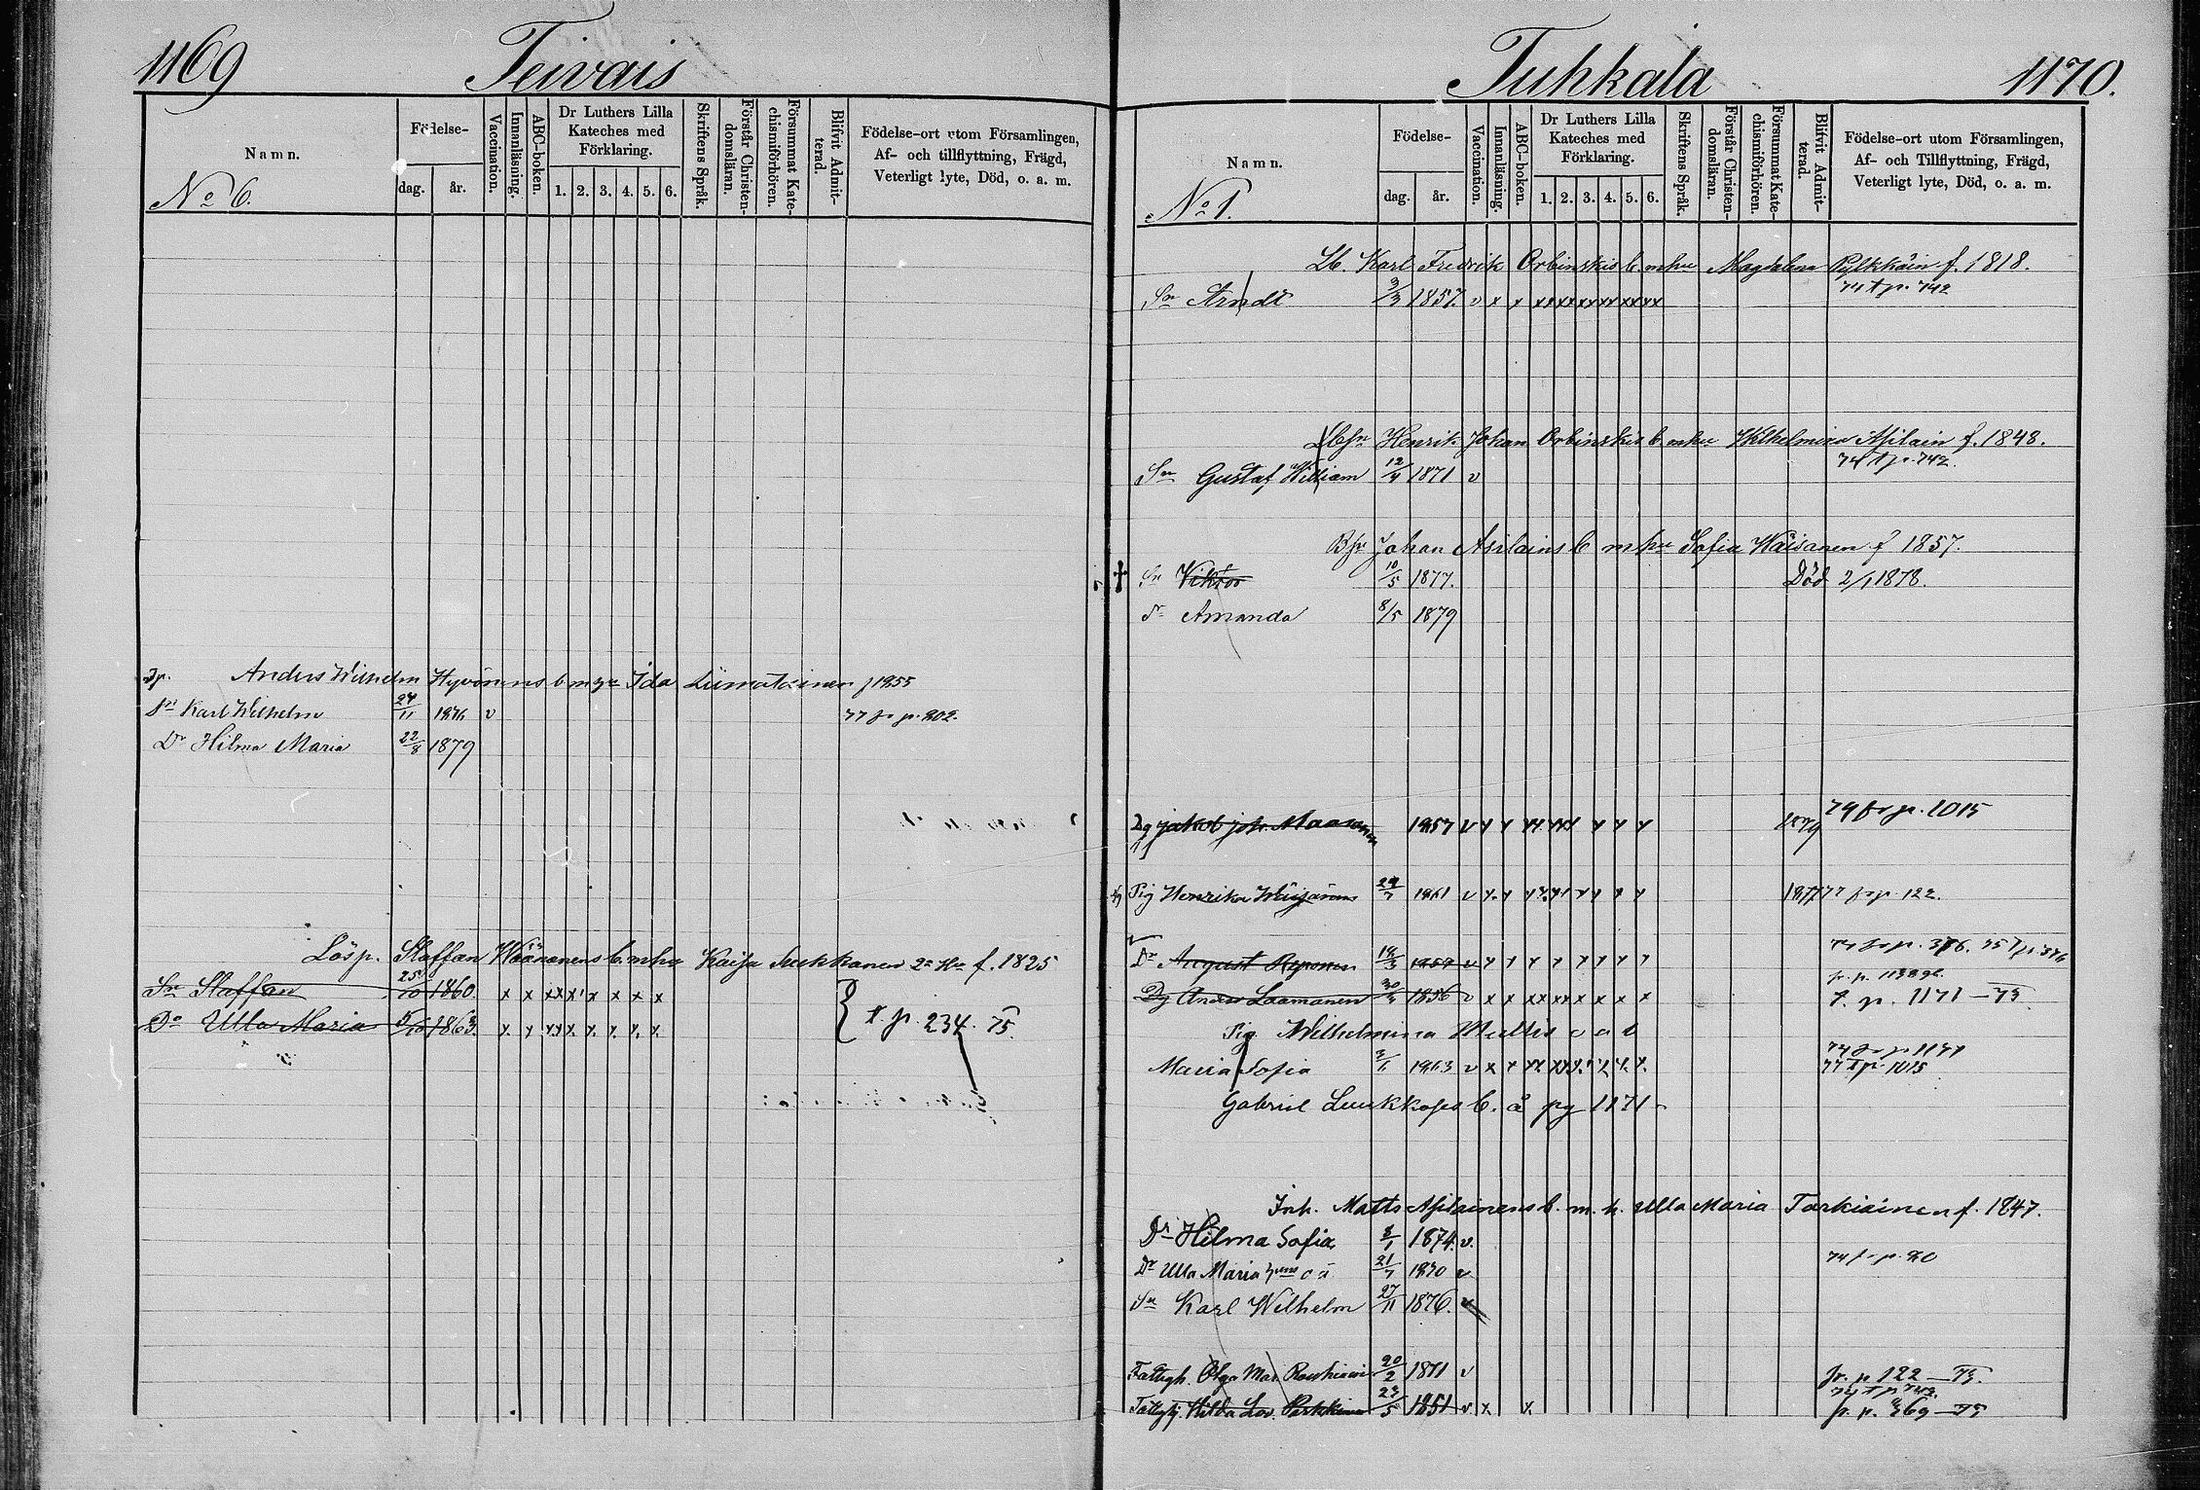 1169
Teivais
Namn.
No 6.
Födelse-
dag.
år.
Vaccination.
Innanläsning.
ABC-boken.
Dr Luthers Lilla
Kateches med
Förklaring.
1. 2. 3. 4. 5. 6.
Skriftens Språk.
Förstår Christen-
domsläran.
Försummat Kate-
chismiförhören.
Blifvit Admit-
terad.
Födelse-ort utom Församlingen,
Af- och tillflyttning, Frägd,
Veterligt lyte, Död, o. a. m.
Anders Wilhelm Hyvönens b m hu Ida Liimatainen f 1855
Sn Karl Wilhelm 24/11 1876 v 77 fr p. 802.
Dr Hilma Maria 22/8 1879
Lösp. Staffan Väänanens b. m hu Kaisa Suhkanen 2a Hu f. 1825
Sn Staffan 25/10 1860. x x x x x x x x x
Dr Ulla Maria 5/10 1863. x x x x x x x x x t. p. 234. 75.
Tuhkala
1170.
Namn.
No 1.
Födelse-
dag.
år.
Vaccination.
Innanläsning.
ABC-boken.
Dr Luthers Lilla
Kateches med
Förklaring.
1. 2. 3. 4. 5. 6.
Skriftens Språk.
Förstår Christen-
domsläran.
Försummat Kate-
chismiförhören.
Blifvit Admit-
terad.
Födelse-ort utom Församlingen,
Af- och Tillflyttning, Frägd,
Veterligt lyte, Död, o. a. m.
Lb. Karl Fredrik Orbinskis b m hu Magdalena Pylkkäin f. 1818.
74 t p. 742
Sn Arndt 3/3 1857. v x x xx xx xx xx xx xx
Henrik Johan Orbinskis b m hu Wilhelmina Asilain f. 1848.
74 t p. 742.
Sn Gustaf William 12/4 1871 v
Johan Asilains b m hu Sofia Wäisänen f 1857.
Sn Viktor 10/5 1877. Död 2/1 1878.
Dr Amanda 8/5 1879
Dg Jakob Joh. 1857 v x x 1879 79 fr p. 1015
Pig Henrika 1861 v x x 1877 77 fr p. 122.
August Reponen 18/3 1859
Dg Anders Laamanen 30/4 1856 v x x xx xx x x x x t. p. 1171 – 73
Pig Wilhelmina
74 fr p 1171
Maria Sofia 1863 v x x 77 t p. 1015
Gabriel b. å pg 1171
Inh. Matts Asilainens b. m. h. Ulla Maria Tarkiainen f. 1847.
Dr Hilma Sofia 1874. v.
Dr Ulla Maria 21/7 1870 v
Sn Karl Wilhelm 27/11 1876. v
Fattigh. Olga Mar. 20/2 1871 v fr. p 122 – 73.
Hilda Lov. Parkkinen 23/5 1851 v x x